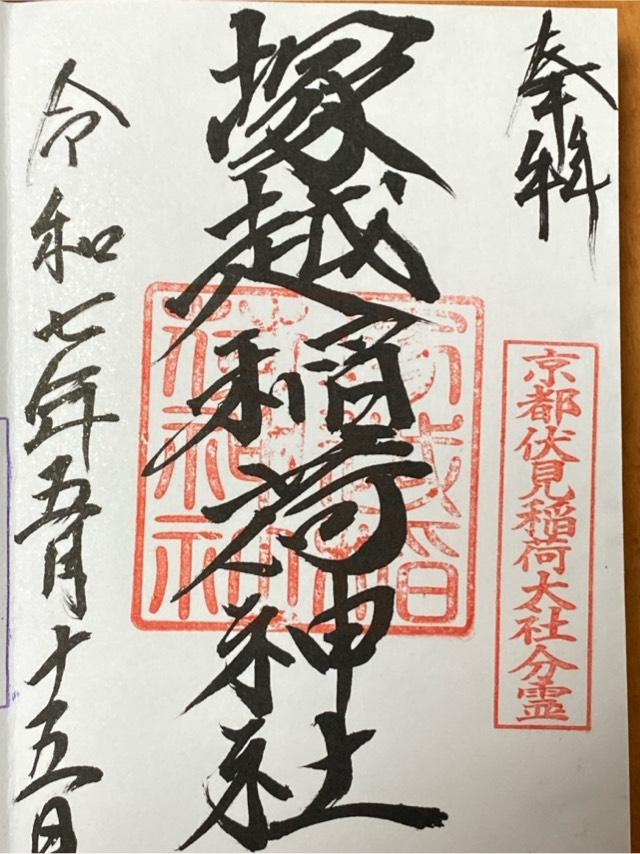 奉拝
京都伏見稲荷大社分霊
塚越稲荷神社
令和七年五月十五日